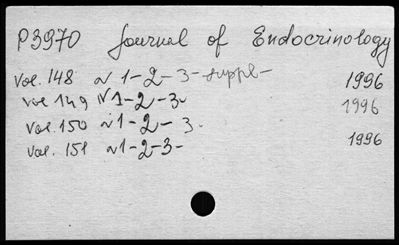 P3970 Journal of Endocrinology
Vol. 148 N 1-2-3-suppl- 1996
Vol 149 N 1-2-3- 1996
Vol. 150 N 1-2-3-
Vol. 151 N 1-2-3- 1996